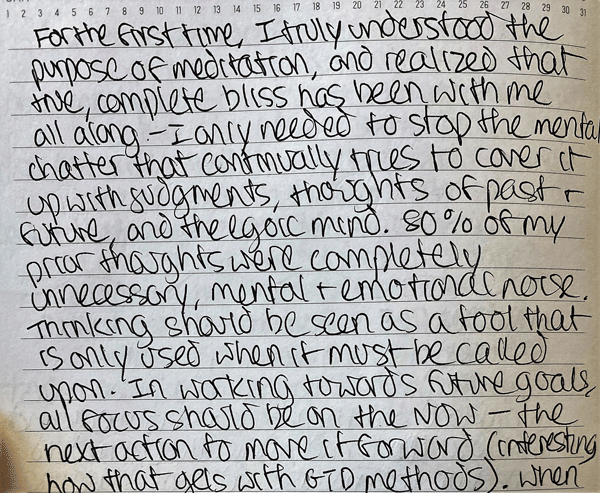 1 2 3 4 5 6 7 8 9 10 11 12 13 14 15 16 17 18 19 20 21 22 23 24 25 26 27 28 29 30 31
For the first time, I truly understood the
purpose of meditation, and realized that
true, complete bliss has been with me
all along - I only needed to stop the mental
chatter that continually tries to cover it
up with judgments, thoughts of past +
future, and the egoic mind. 80% of my
prior thoughts were completely
unnecessary, mental + emotional noise.
Thinking should be seen as a tool that
is only used when it must be called
upon. In working towards future goals,
all focus should be on the NOW - the
next action to move it forward (interesting
how that gels with GTD methods). When